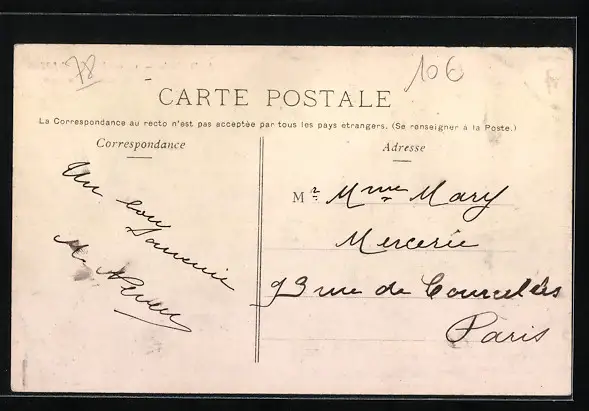 78
10€
CARTE POSTALE
La Correspondance au recto n'est pas acceptée par tous les pays etrangers. (Se renseigner à la Poste.)
Correspondance
Adresse
Un bon
Souvenir
M
Mr Mme Mary
Mercerie
93 rue de Courcelles
Paris